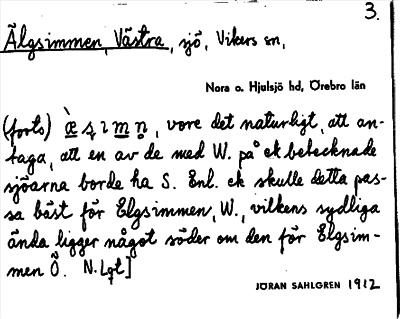 3.
Älgsimmen, Västra, sjö, Vikers sn,
Nora o. Hjulsjö hd, Örebro län
(forts) vore det naturligt, att an-
taga, att en av de med W. på ek betecknade
sjöarna borde ha S. Enl. ek skulle detta pas-
sa bäst för Elgsimmen, W., vilkens sydliga
ända ligger något söder om den för Elgsim-
men Ö. N. Lgt]
JÖRAN SAHLGREN 1912